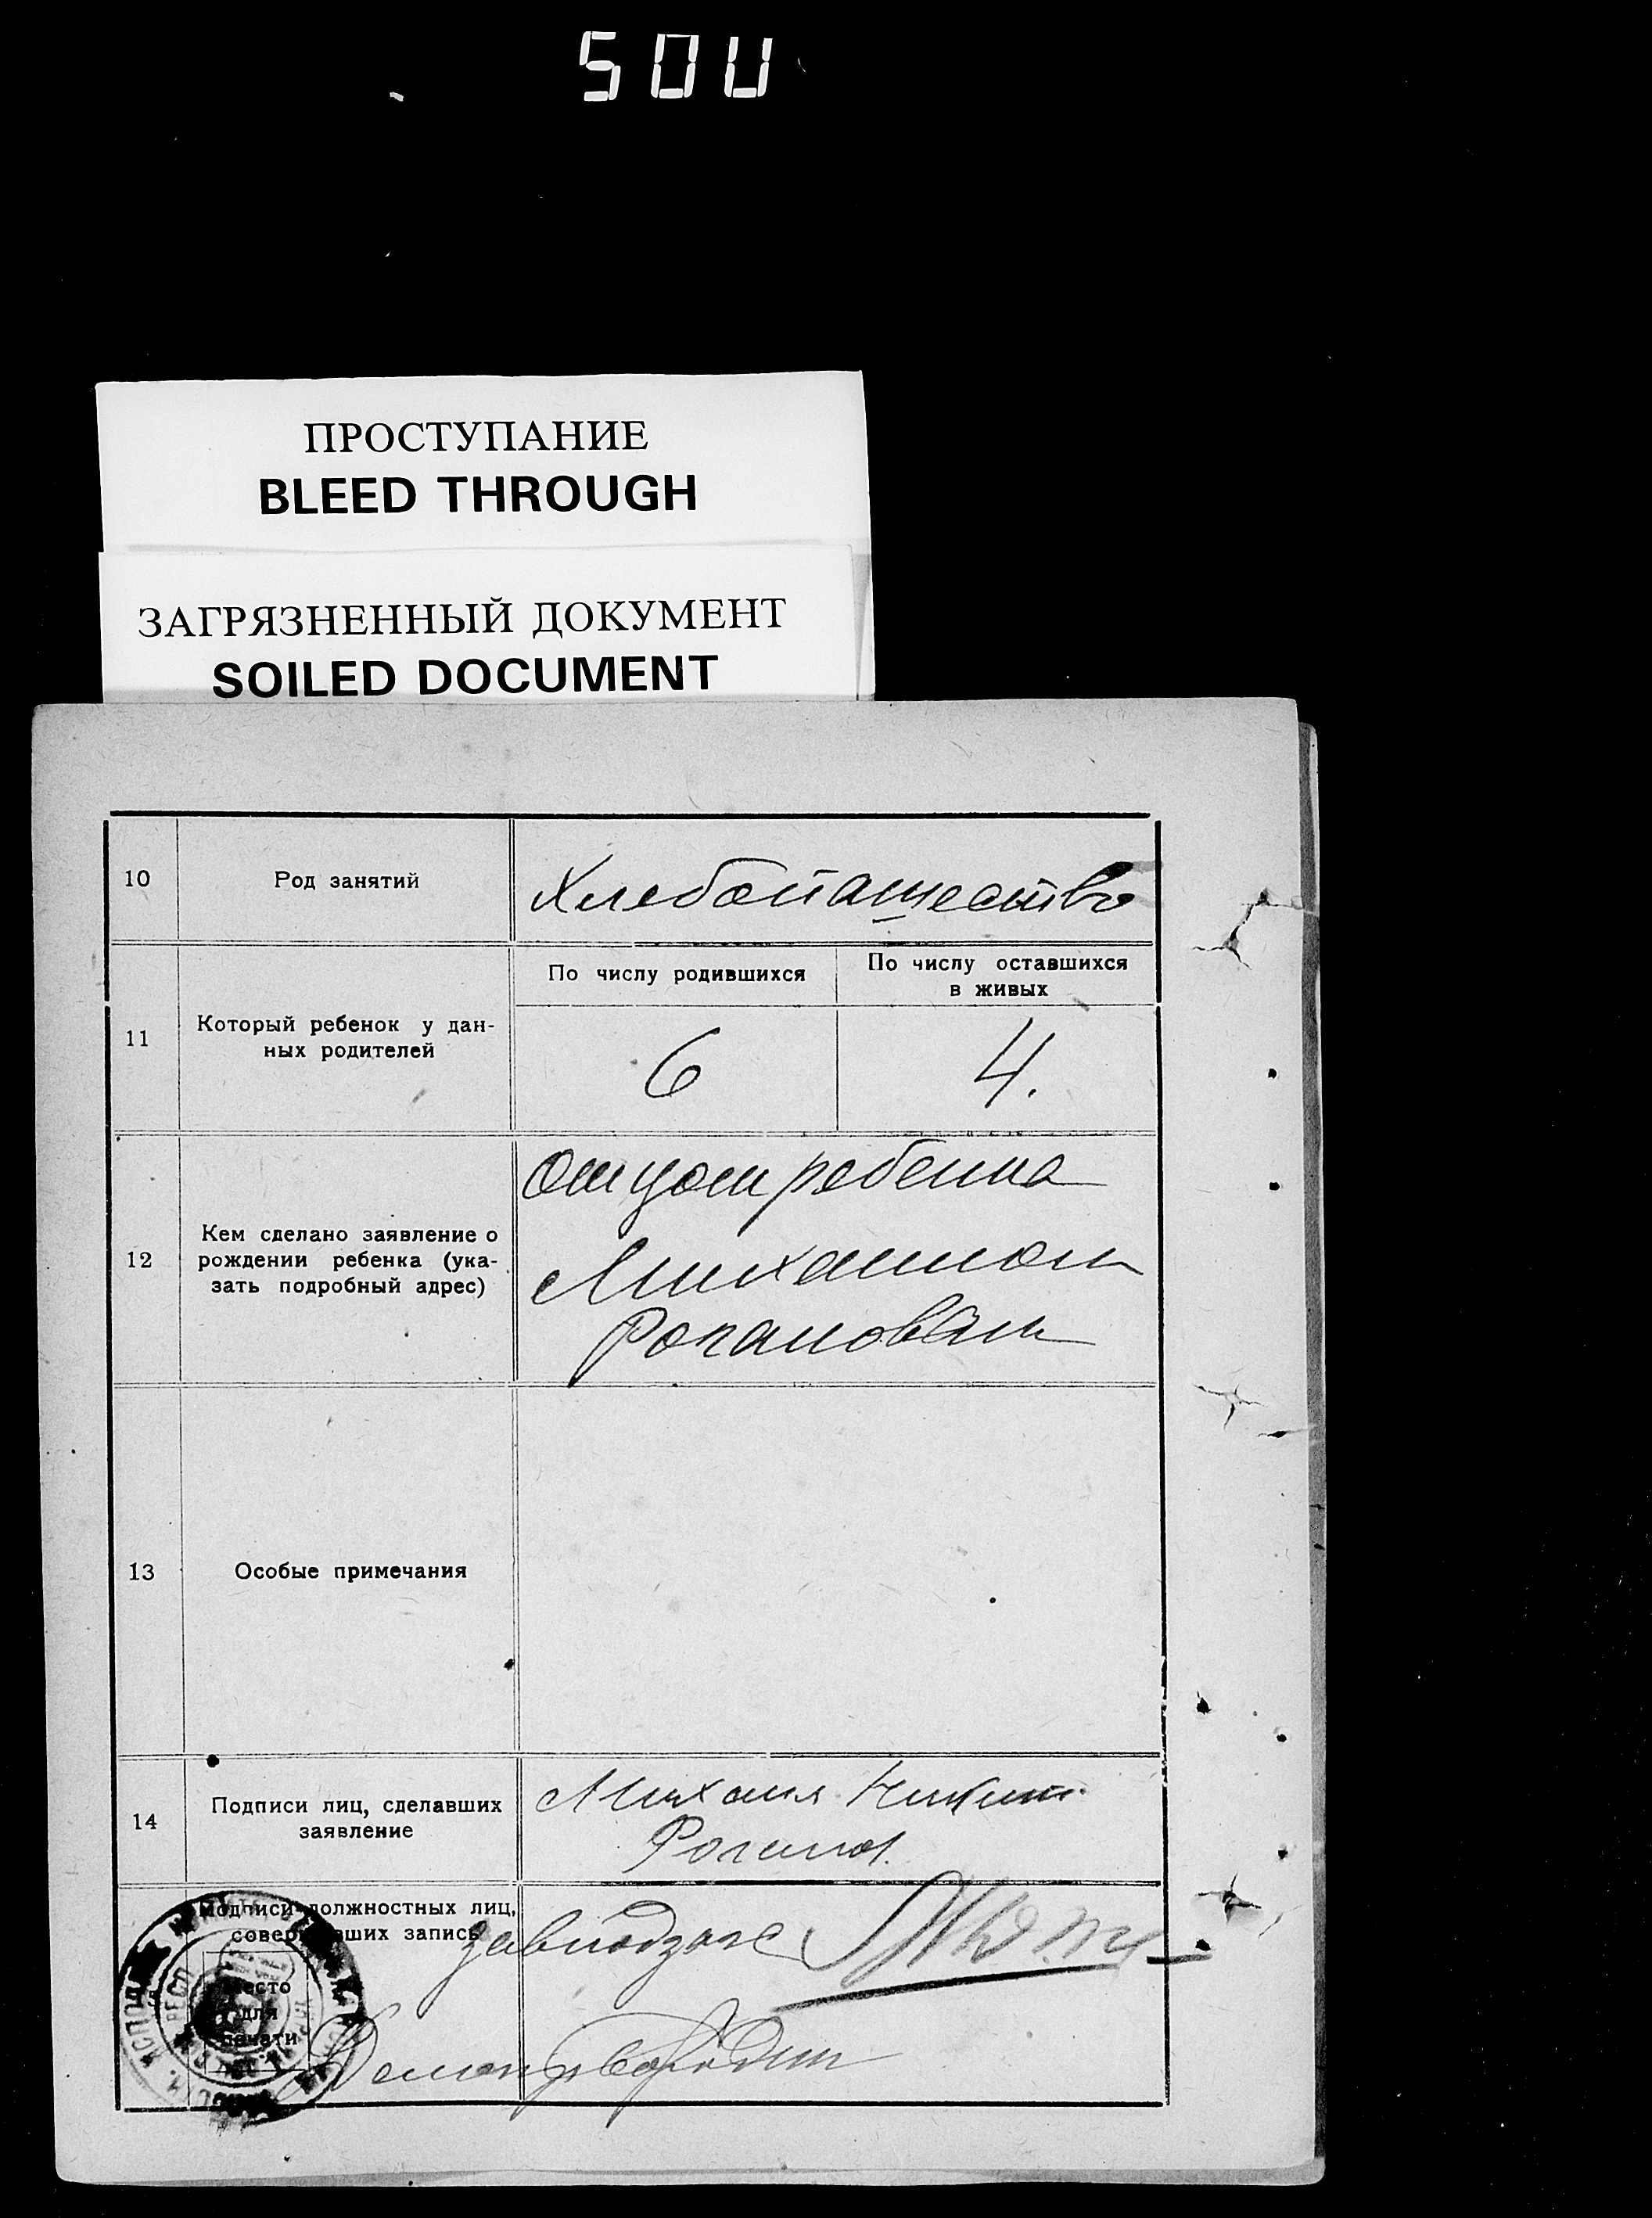 500
ПРОСТУПАНИЕ
BLEED THROUGH
ЗАГРЯЗНЕННЫЙ ДОКУМЕНТ
SOILED DOCUMENT
10
Род занятий
Хлебопашество
11
Который ребенок у дан-
ных родителей
По числу родившихся
По числу оставшихся
в живых
6
4.
12
Кем сделано заявление о
рождении ребенка (ука-
зать подробный адрес)
Отцом ребенка
Михаилом
Рогановым
13
Особые примечания
14
Подписи лиц, сделавших
заявление
Михаил
Роганов
Подписи должностных лиц,
совершивших запись
Место
для
печати